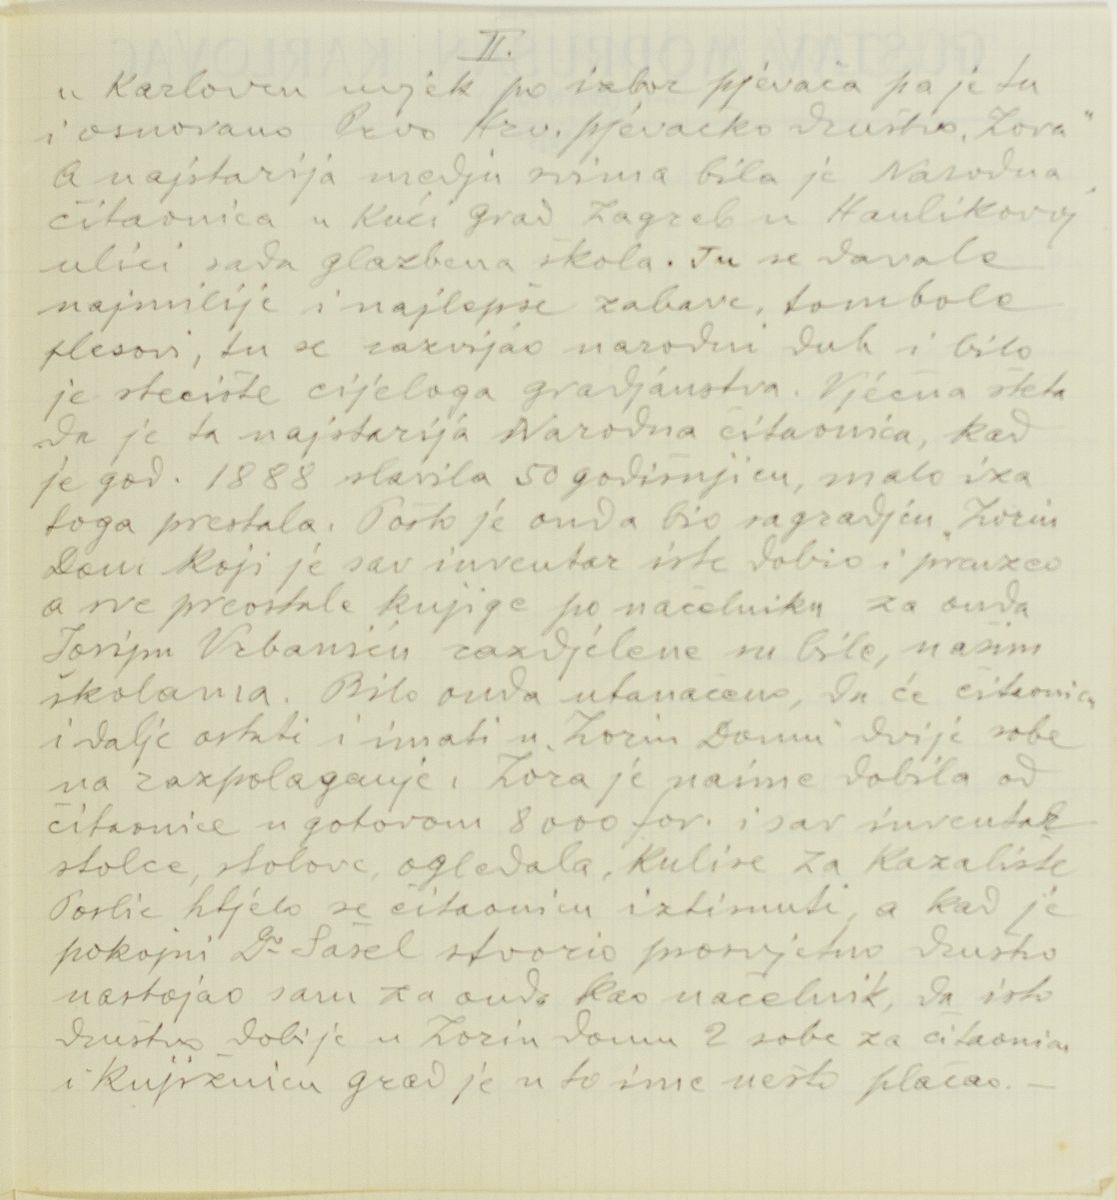 II.
u Karlovcu uvjek po izbor pjevača pa je tu
i osnovano Prvo Hrv. pjevačko društvo „Zora"
A najstarija medju svima bila je Narodna
čitaonica u Kući Grad Zagreb u Haulikovoj
ulici sada glazbena škola. Tu se davale
najmilije i najlepše zabave, tombole
plesovi, tu se razvijao narodni duh i bilo
je stecište cijeloga gradjanstva. Vječna šteta
da je ta najstarija Narodna čitaonica, kad
je god. 1888 slavila 50 godišnjicu, malo iza
toga prestala. Pošto je onda bio sagradjen „Zorin
Dom" koji je sav inventar iste dobio i preuzeo
a sve preostale knjige po načelniku za onda
Josipu Vrbaniću razdjelene su bile, našim
školama. Bilo onda utanačeno, da će čitaonica
i dalje ostati i imati u „Zorin Domu" dvije sobe
na razpolaganje, Zora je naime dobila od
čitaonice u gotovom 8000 for. i sav inventar
stolce, stolove, ogledala, kulise za Kazalište
Poslie htjelo se čitaonicu iztisnuti, a kad je
pokojni Dr Šašel stvorio prosvjetno društvo
nastojao sam za onda kao načelnik, da isto
društvo dobije u Zorin domu 2 sobe za čitaonicu
i knjižnicu grad je u to ime nešto plaćao. —